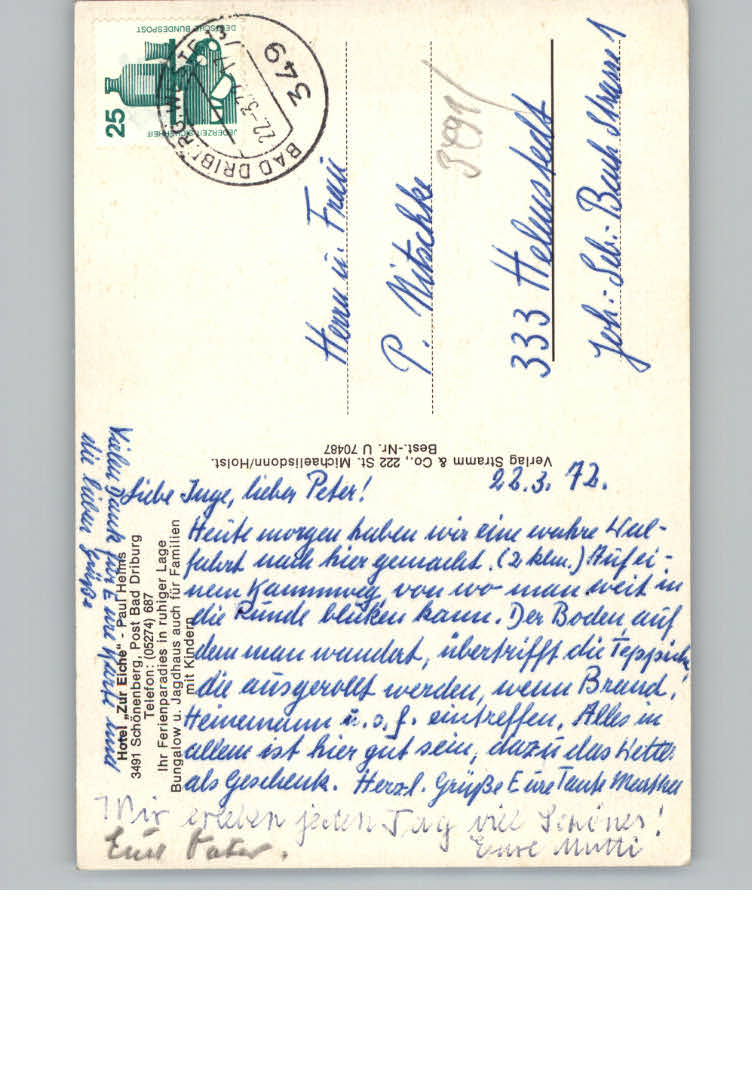 25
JEDERZEIT SICHERHEIT
DEUTSCHE BUNDESPOST
349
BAD DRIBURG
22.-3.72
Herrn u. Frau
P. Nitschke
3491
333 Helmstedt
Joh.-Seb.-Bach Strasse 1
Verlag Stramm & Co., 222 St. Michaelisdonn/Holst.
Best.-Nr. U 70487
Hotel „Zur Eiche“ - Paul Helms
3491 Schönenberg, Post Bad Driburg
Telefon: (05274) 687
Ihr Ferienparadies in ruhiger Lage
Bungalow u. Jagdhaus auch für Familien
mit Kindern
22.3.72.
Liebe Inge, lieber Peter!
Heute morgen haben wir eine wahre Wal-
fahrt nach hier gemacht. (2 klm.) Auf ei-
nem Kammweg, von wo man weit in
die Runde blicken kann. Der Boden, auf
dem man wandert, übertrifft die Teppiche,
die ausgerollt werden, wenn Brand,
Heinemann u.s.f. eintreffen. Alles in
allem ist hier gut sein, dazu das Wetter
als Geschenk. Herzl. Grüße Eure Tante Martha
Vielen Dank für Eure Karte und
die lieben Grüße
Wir erleben jeden Tag viel Schönes!
Eure Mutti
Euer Vater.